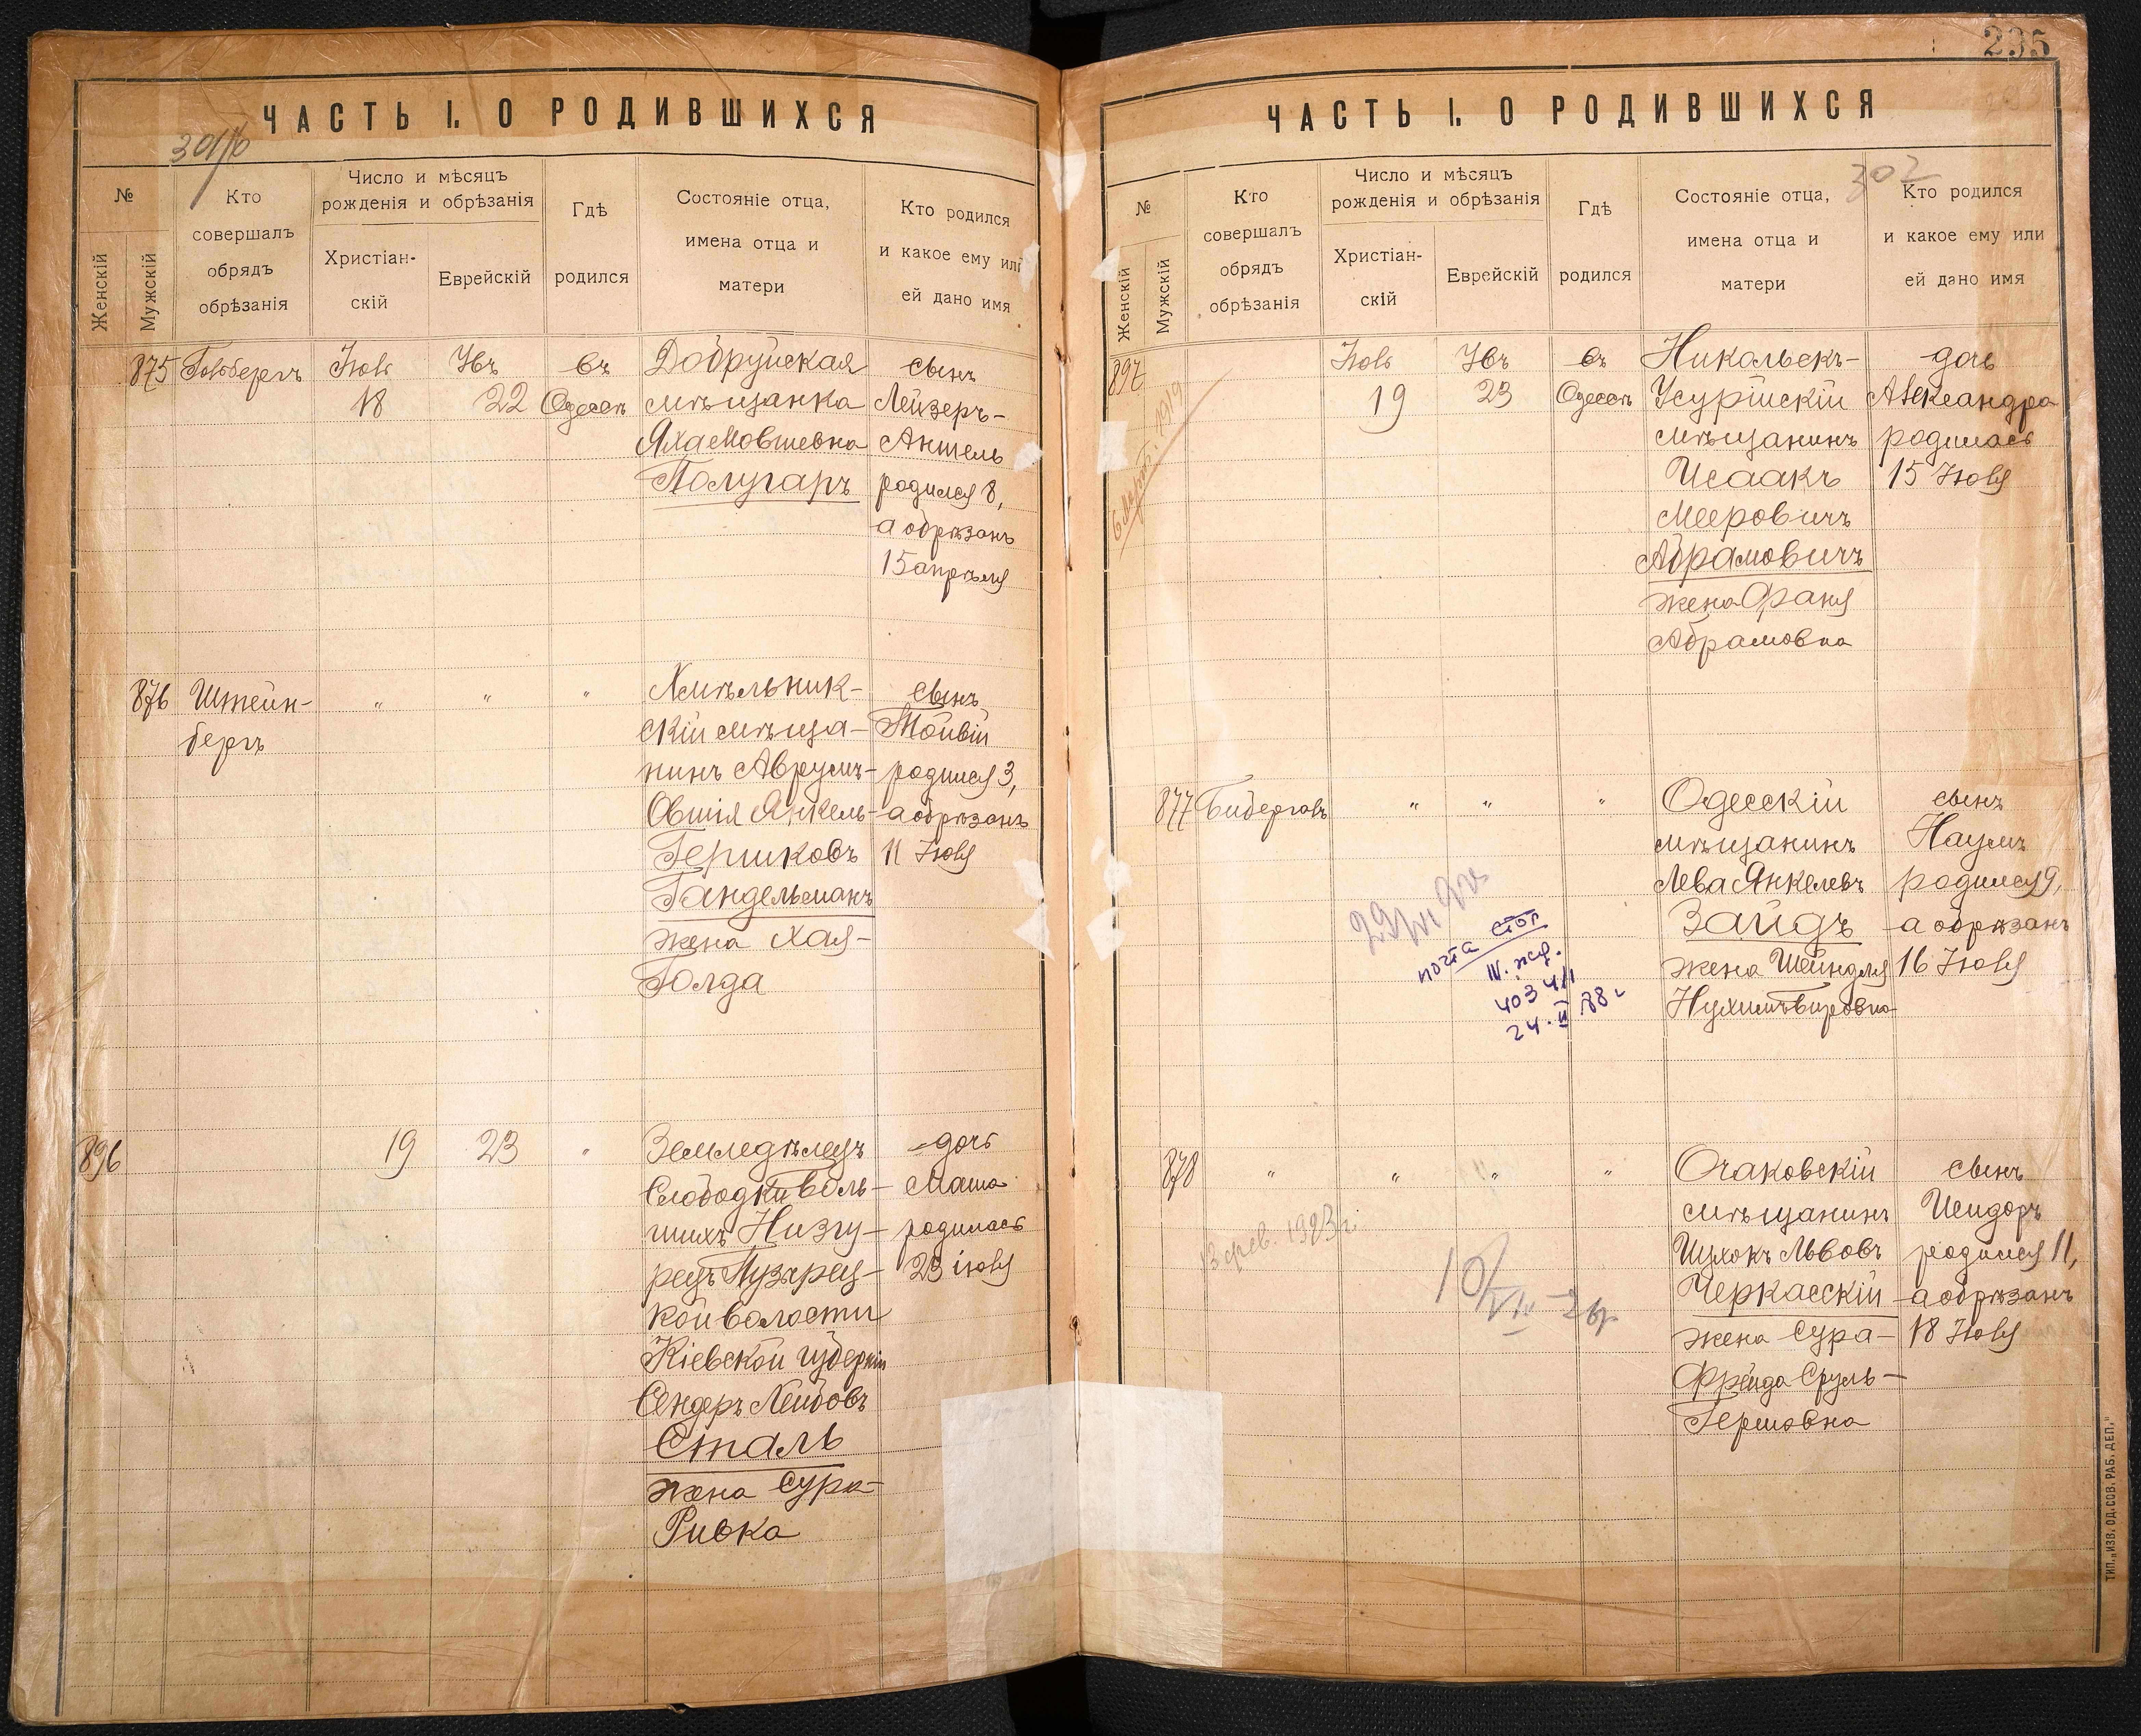 235
ЧАСТЬ I. О РОДИВШИХСЯ
№
Женскій
Мужскій
Кто
совершалъ
обрядъ
обрѣзанія
Число и мѣсяцъ
рожденія и обрѣзанія
Христіан-
скій
Еврейскій
Гдѣ
родился
Состояніе отца,
имена отца и
матери
Кто родился
и какое ему или
ей дано имя
875
Гольдбергъ
Іюль
18
22
въ
Одессѣ
мѣщанка
Яха Мовшевна
Полугаръ
сынъ
Лейзеръ-
Аншель
родился 8,
а обрѣзанъ
15 апрѣля
876
Штейн-
бергъ
"
"
"
Хмѣльник-
скій мѣща-
нинъ Аврумъ-
Овшія Янкель-
Гершковъ
Гандельманъ
жена Хая-
Голда
сынъ
Тойвій
родился 3,
а обрѣзанъ
11 Іюля
896
19
23
"
Земледѣлецъ
Слободки Боль-
шихъ Низгу-
рецъ
кой волости
Кіевской губерніи
Сендеръ Лейбовъ
Сталь
жена Сура-
Ривка
дочь
Маша
родилась
23 іюля
ЧАСТЬ I. О РОДИВШИХСЯ
302
№
Женскій
Мужскій
Кто
совершалъ
обрядъ
обрѣзанія
Число и мѣсяцъ
рожденія и обрѣзанія
Христіан-
скій
Еврейскій
Гдѣ
родился
Состояніе отца,
имена отца и
матери
Кто родился
и какое ему или
ей дано имя
897
Іюль
19
23
въ
Одессѣ
Никольскъ-
Усурійскій
мѣщанинъ
Исаакъ
Мееровичъ
Абрамовичъ
жена Фаня
Абрамовна
дочь
Александра
родилась
15 Іюля
877
"
"
"
Одесскій
мѣщанинъ
Лева Янкелевъ
Зайдъ
жена Шейндля
сынъ
Наумъ
родился 9,
а обрѣзанъ
16 Іюля
почта стол
24.II 88 г
878
"
"
"
"
Очаковскій
мѣщанинъ
Ицхокъ Львовъ
Черкасскій
жена Сура-
Фрейда Сруль-
Гершовна
сынъ
Исидоръ
родился 11,
а обрѣзанъ
18 Іюля
13 фев. 1923 г.
ТИП. „ИЗВ. ОД. СОВ. РАБ. ДЕП."